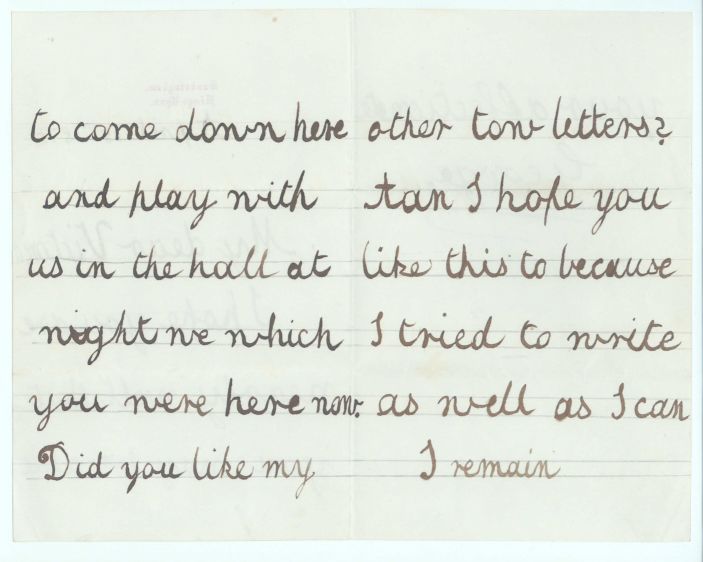 to come down here
and play with
us in the hall at
night we which
you were here now.
Did you like my
other tow letters?
tan I hope you
like this to because
I tried to write
as well as I can
I remain